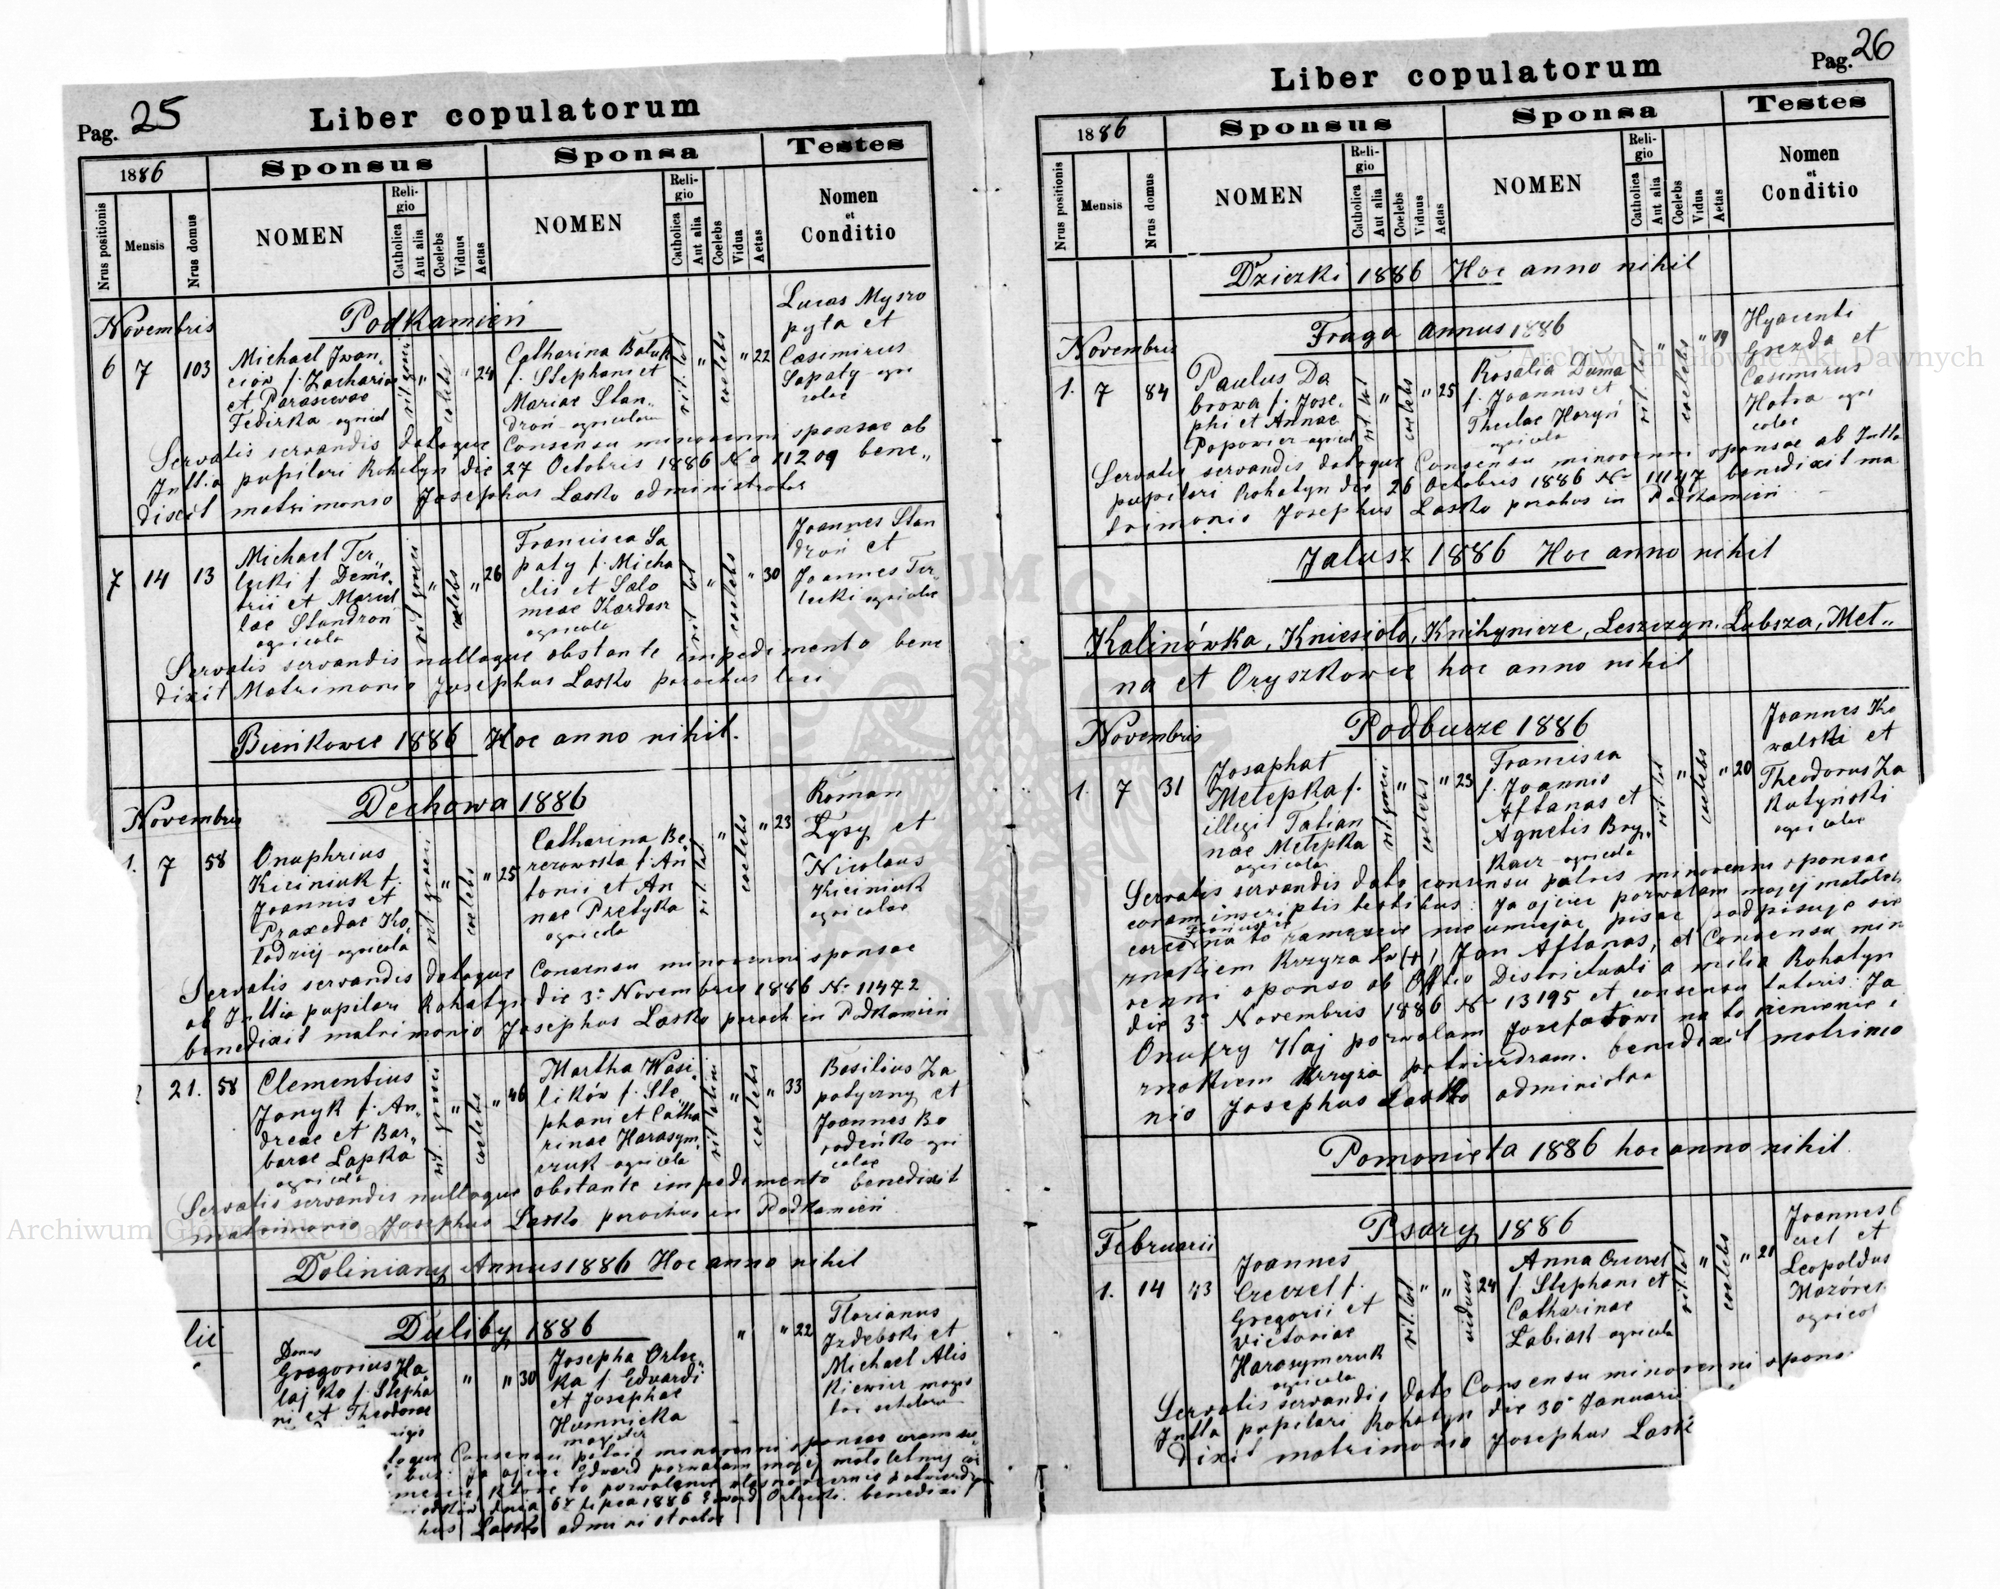 Pag. 25
Liber copulatorum
1886
Sponsus
Sponsa
Testes
Nrus positionis
Mensis
Nrus domus
NOMEN
Religio
Catholica
Aut alia
Coelebs
Viduus
Aetas
NOMEN
Religio
Catholica
Aut alia
Coelebs
Vidua
Aetas
Nomen
et
Conditio
Novembris
Podkamień
6 7 103
Michael Iwan
ciów f. Zachariae
et Parascevae
Fedirka agricol
coelebs
" 24
Catharina Batuk
f. Stephani et
Mariae Stan„
droń agricolarum
rit. lat
"
coelebs
" 22
Lucas
pyta et
Casimirus
Sapaty agri
colae
Servatis servandis datoque Consensu minorenni sponsae ab
Jnttia pupilari Rohatyn die 27 Octobris 1886 No 11209 bene„
dixit matrimonio Josephus Lasko administrator
7 14 13
Michael Ter„
lecki f. Deme„
trii et Marcel
lae Standron
agricola
"
coelebs
" 26
Francisca Sa
paty f. Micha
elis et Salo
meae Kardasz
agricola
rit lat
"
coelebs
" 30
Joannes Stan
droń et
Joannes Ter„
lecki agricolae
Servatis servandis nulloque obstante impedimento bene
dixit Matrimonio Josephus Lasko parochus loci
Bieńkowce 1886 Hoc anno nihil.
Dechowa 1886
Novembris
1. 7 58
Onuphrius
Kiciniuk f.
Joannis et
Praxedae Ko„
łodzij agricola
"
coelebs
" 25
Catharina Be„
rezowska f. An
tonii et An
nae Pretyka
agricola
rit lat
"
coelebs
" 23
Roman
Łysy et
Nicolaus
Kiciniuk
agricolae
Servatis servandis datoque Consensu minorenni sponsae
ab Jnttia pupilari Rohatyn die 3 Novembris 1886 No 11472
benedixit matrimonio Josephus Lasko paroch in Podkamień
21. 58
Clementius
Janyk f. An„
dreae et Bar„
barae Lapka
agricola
"
coelebs
" 46
Martha Wasi„
lików f. Ste„
phani et Catha
rinae Harasym
czuk agricola
rit latini
"
coelebs
" 33
Basilius Za
patyczny et
Joannes Bo
rodeńko agri
colae
Servatis servandis nulloque obstante impedimento benedixit
matrimonio Josephus Lasko parochus in Podkamień
Doliniany Annus 1886 Hoc anno nihil
Duliby 1886
lii
Gregorius Ha„
lajko f. Stepha
ni et Theodorae
"
" 30
Josepha Orlec„
ka f. Edvardi
et Josephae
Humnicka
magister
"
" 22
Florianus
Jzdebski et
Michael Alis
kiewicz magis
ter
toque Consensu patris minorenni sponsae coram
bus. Ja ojciec Edward pozwalam mojej małoletniej
dnia 6 lipca 1886 Edward Orlecki. benedixit
hus Lasko administrator
Pag. 26
Liber copulatorum
1886
Sponsus
Sponsa
Testes
Nrus positionis
Mensis
Nrus domus
NOMEN
Religio
Catholica
Aut alia
Coelebs
Viduus
Aetas
NOMEN
Religio
Catholica
Aut alia
Coelebs
Vidua
Aetas
Nomen
et
Conditio
Dziczki 1886 Hoc anno nihil
Fraga annus 1886
Novembris
1. 7 84
Paulus Da
browa f. Jose„
phi et Annae
Popowicz agricol
rit. lat
"
coelebs
" 25
Rosalia Duma
f. Joannis et
Theclae Horyń
agricola
rit. lat
"
coelebs
" 19
Hyacinti
Gnezda et
Casimirus
Hatra agri
colae
Servatis servandis datoque Consensu minorenni sponsae ab Jnttia
pupilari Rohatyn die 26 Octobris 1886 No 11147 benedixit ma
trimonio Josephus Lasko parohus in Podkamień
Jalusz 1886 Hoc anno nihil
Kalinówka, Kniesioło, Knihynicze, Leszczyn, Lubsza, Met„
na et Oryszkowce hoc anno nihil
Podburze 1886
Novembris
1. 7 31
Josaphat
Metepka f.
illegit Tatian
nae Metepka
agricola
"
coelebs
" 23
Francisca
f. Joannis
Aftanas et
Agnetis Bry„
kacz agricola
rit. lat
"
coelebs
" 20
Joannes Ko
walski et
Theodorus Za
kutyński
agricolae
Servatis servandis dato consensu patris minorenni sponsae
coram inscriptis testibus: Ja ojciec pozwalam mojej małolet
na to zamęzcie nieumiejąc pisac podpisuje sie
znakiem krzyza Sw (+) Jan Aftanas, et Consensu min
orenni sponso ab Offtio Districtuali a milia Rohatyn
die 3 Novembris 1886 No 13195 et consensu tutoris Ja
Onufry Haj pozwalam Jozefatowi na to zienienie i
znakiem Krzyza potwierdzam. benedixit matrimo
nio Josephus Lasko administrator
Pomonięta 1886 hoc anno nihil.
Psary 1886
Februarii
1. 14 43
Joannes
Czeczel f.
Gregorii et
Victoriae
Harasymczuk
agricola
rit. lat
"
"
viduus
24
Anna
f. Stephani et
Catharinae
Łabiak agricola
rit. lat
"
coelebs
" 21
Joannes
et
Leopoldus
Mazórek
agricol
Servatis servandis dato Consensu minorenni spons
Jnttia pupilari Rohatyn die 30 Januarii
dixit matrimonio Josephus Lask
Archiwum Główne Akt Dawnych
Archiwum Główne Akt Dawnych